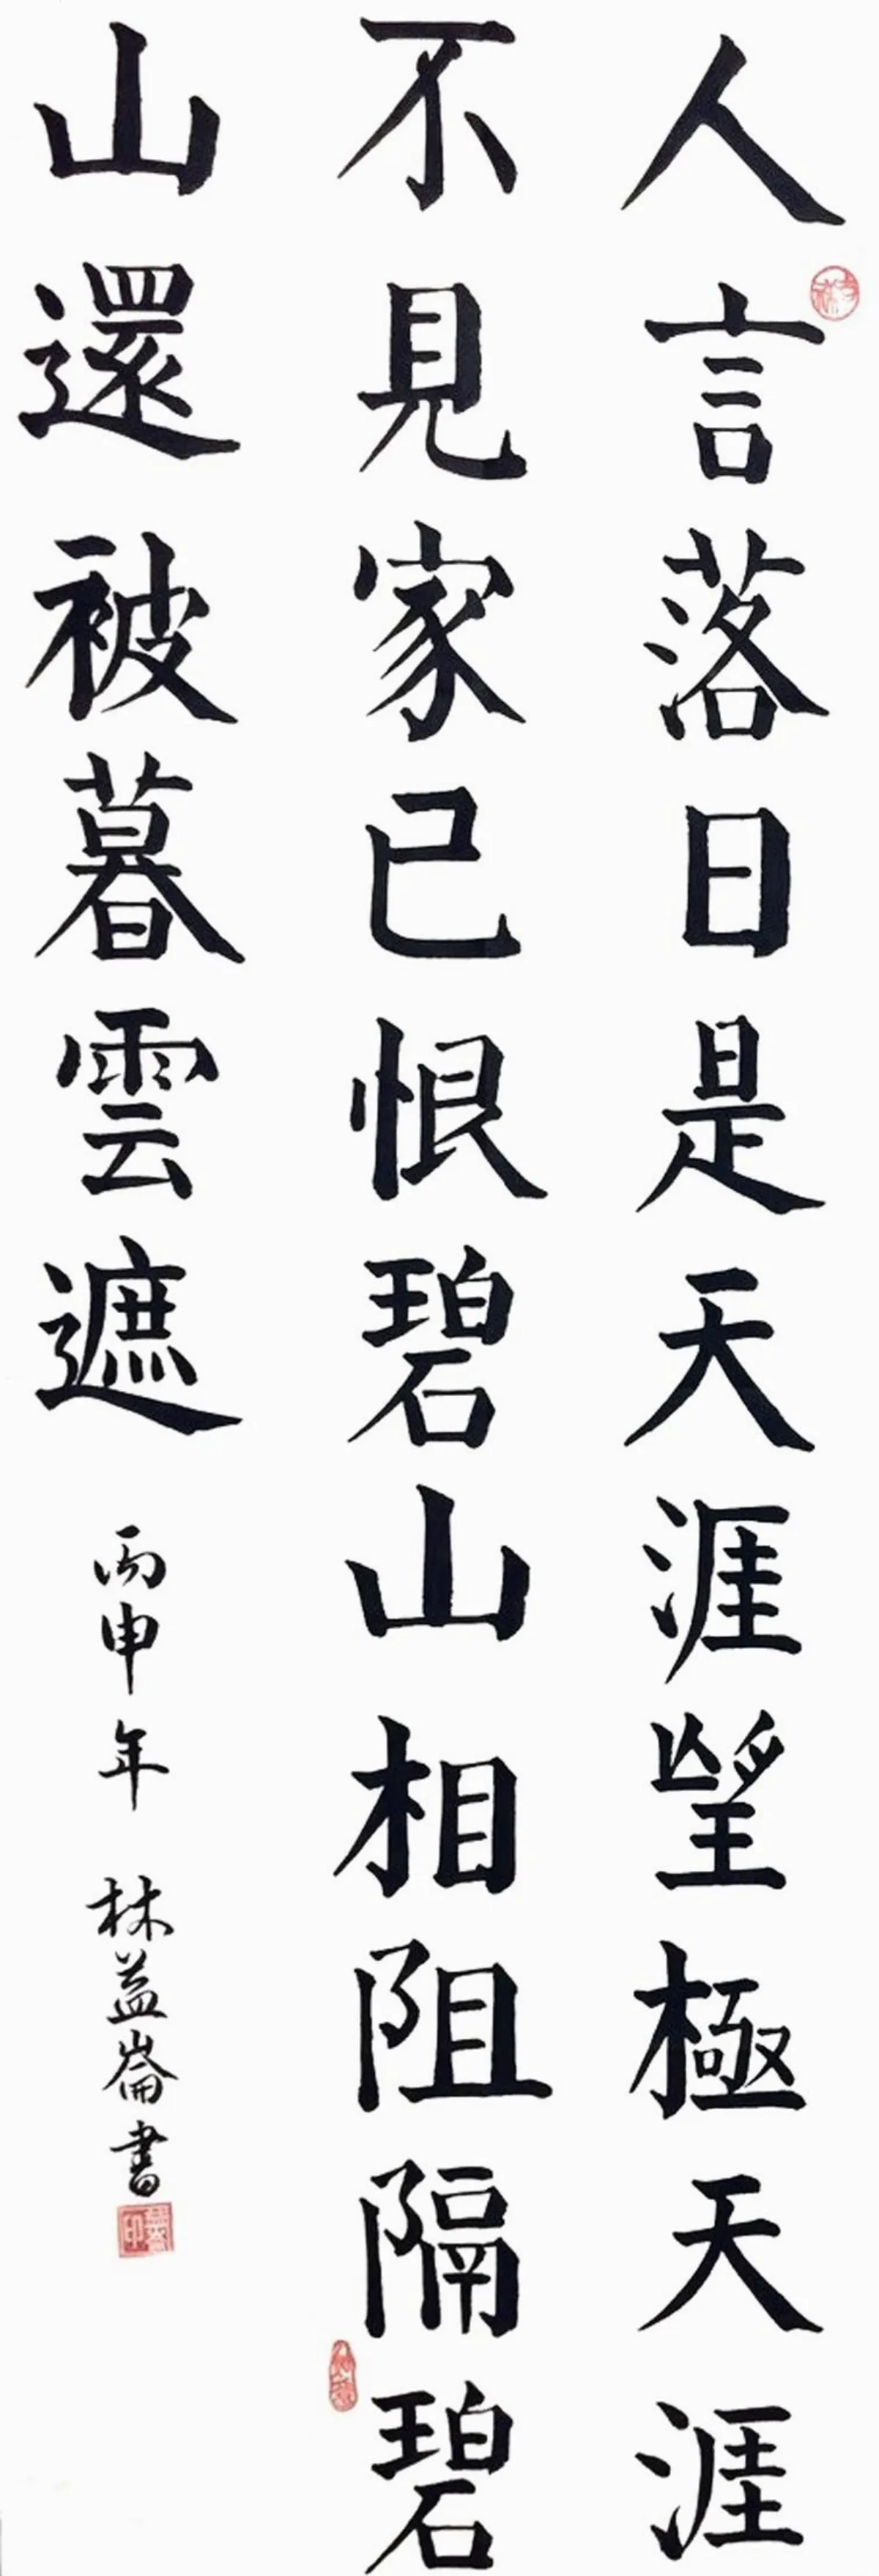 人言落日是天涯望極天涯
不見家已恨碧山相阻隔碧
山還被暮雲遮
丙申年 林益崙書